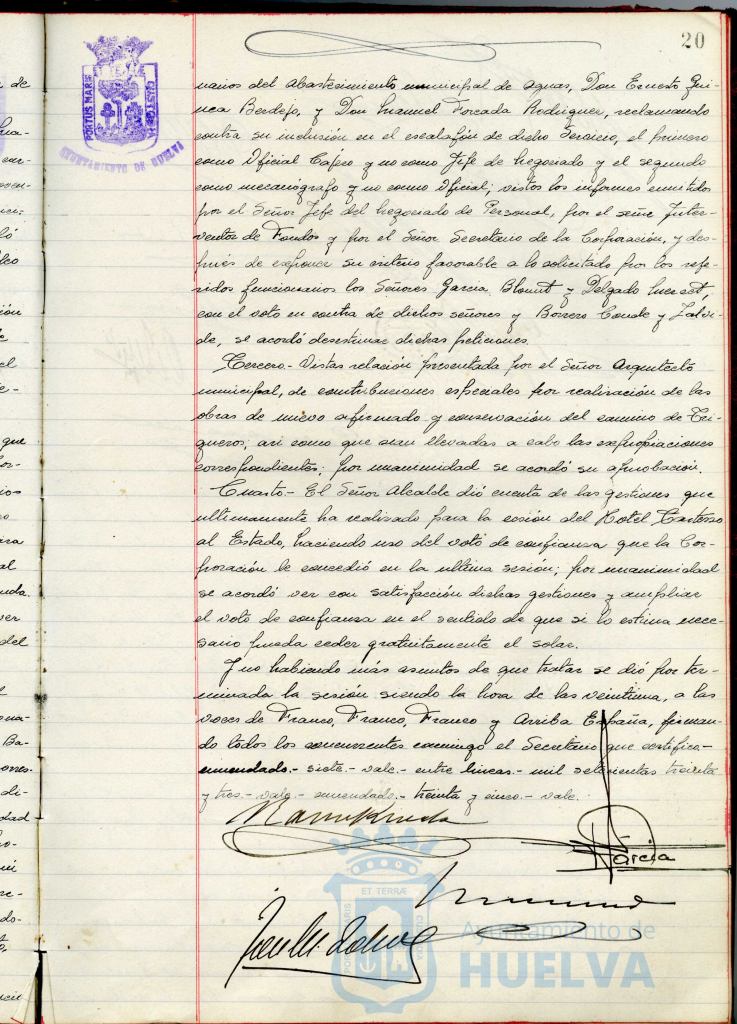 20
PORTUS MARIS ET TERRÆ CUSTODIA
AYUNTAMIENTO DE HUELVA
narios del abastecimiento municipal de aguas, Don Ernesto Qui-
nea Berdejo, y Don Manuel Forcada Rodriguez, reclamando
contra su inclusión en el escalafón de dicho Servicio, el primero
como Oficial Cajero y no como Jefe de Negociado y el segundo
como mecanógrafo y no como Oficial; vistos los informes emitidos
por el Señor Jefe del Negociado de Personal, por el señor Inter-
ventor de Fondos y por el Señor Secretario de la Corporación, y des-
pués de exponer su criterio favorable a lo solicitado por los refe-
ridos funcionarios los Señores Garcia, Blount y Delgado
con el voto en contra de dichos señores y Borrero Conde y Zalvi-
de, se acordó desestimar dichas peticiones.
Tercero.- Vistas relación presentada por el Señor Arquitecto
municipal, de contribuciones especiales por realización de las
obras de nuevo afirmado y conservación del camino de Tri-
gueros, asi como que sean llevadas a cabo las expropiaciones
correspondientes; por unanimidad se acordó su aprobación.
Cuarto.- El Señor Alcalde dió cuenta de las gestiones que
ultimamente ha realizado para la cesión del Hotel Tartesso
al Estado, haciendo uso del voto de confianza que la Cor-
poración le concedió en la ultima sesión; por unanimidad
se acordó ver con satisfacción dichas gestiones y ampliar
el voto de confianza en el sentido de que si lo estima nece-
sario pueda ceder gratuitamente el solar.
Y no habiendo más asuntos de que tratar se dió por ter-
minada la sesión siendo la hora de las veintiuna, a las
voces de Franco, Franco, Franco y Arriba España, firman-
do todos los concurrentes conmigo el Secretario que certifico-
enmendado.- siete.- vale.- entre lineas.- mil setecientas treinta
y tres.- vale.- enmendado.- treinta y cinco.- vale.
Garcia
ET TERRÆ
Ayuntamiento de
HUELVA